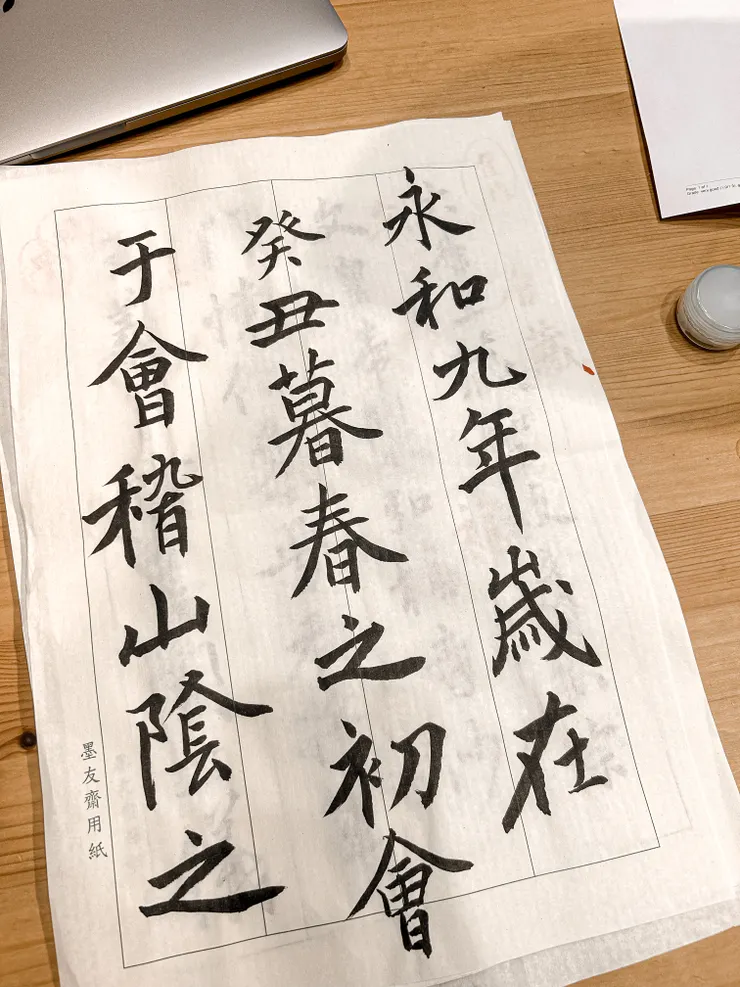 永和九年歲在
癸丑暮春之初會
于會稽山陰之
墨友齋用紙